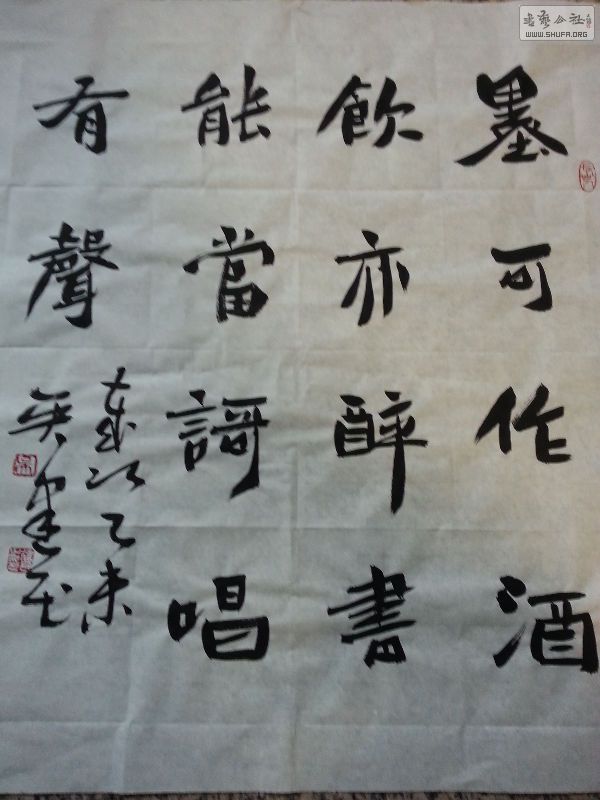 墨可作酒
飲亦醉書
能當謌唱
有聲
歲次乙未
書藝公社
WWW.SHUFA.ORG